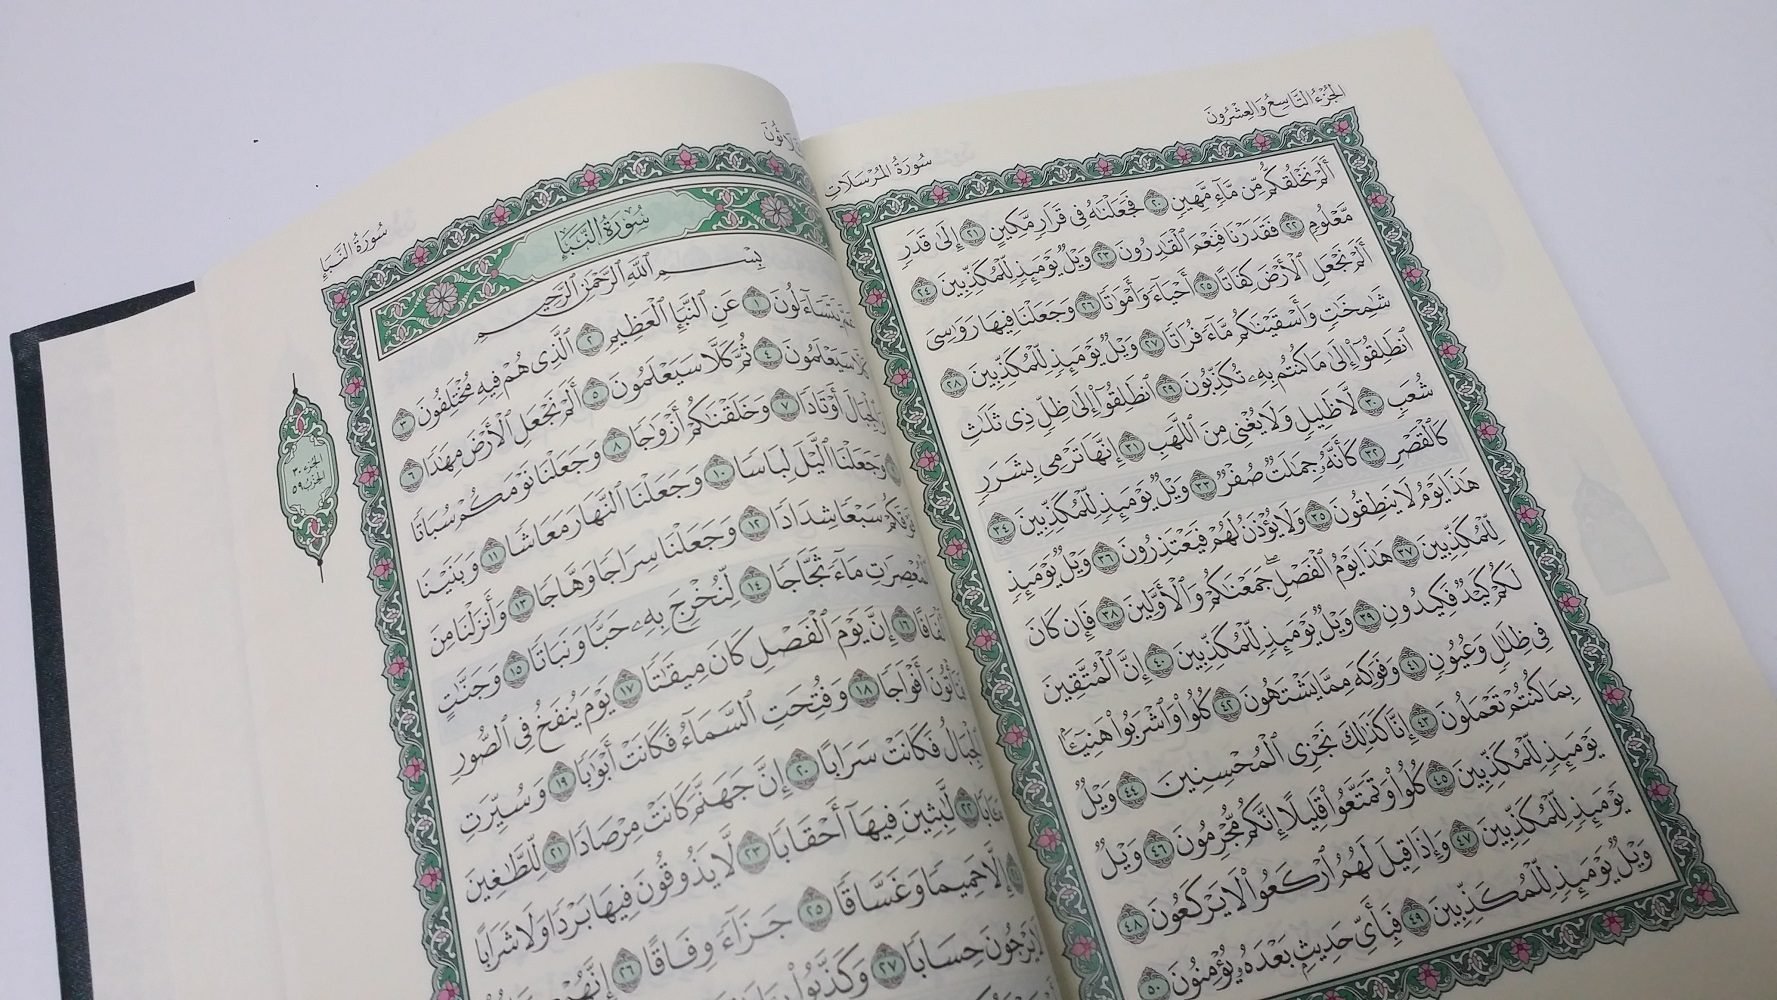 الجُزْءُ التَّاسِعُ وَالعِشْرُونَ
سُورَةُ المُرْسَلَات
أَلَمْ نَخْلُقكُّم مِّن مَّآءٍ مَّهِينٍ ٢٠ فَجَعَلْنَٰهُ فِى قَرَارٍ مَّكِينٍ ٢١ إِلَىٰ قَدَرٍ
مَّعْلُومٍ ٢٢ فَقَدَرْنَا فَنِعْمَ ٱلْقَٰدِرُونَ ٢٣ وَيْلٌ يَوْمَئِذٍ لِّلْمُكَذِّبِينَ ٢٤
أَلَمْ نَجْعَلِ ٱلْأَرْضَ كِفَاتًا ٢٥ أَحْيَآءً وَأَمْوَٰتًا ٢٦ وَجَعَلْنَا فِيهَا رَوَٰسِىَ
شَٰمِخَٰتٍ وَأَسْقَيْنَٰكُم مَّآءً فُرَاتًا ٢٧ وَيْلٌ يَوْمَئِذٍ لِّلْمُكَذِّبِينَ ٢٨
ٱنطَلِقُوٓا۟ إِلَىٰ مَا كُنتُم بِهِۦ تُكَذِّبُونَ ٢٩ ٱنطَلِقُوٓا۟ إِلَىٰ ظِلٍّ ذِى ثَلَٰثِ
شُعَبٍ ٣٠ لَّا ظَلِيلٍ وَلَا يُغْنِى مِنَ ٱللَّهَبِ ٣١ إِنَّهَا تَرْمِى بِشَرَرٍ
كَٱلْقَصْرِ ٣٢ كَأَنَّهُۥ جِمَٰلَتٌ صُفْرٌ ٣٣ وَيْلٌ يَوْمَئِذٍ لِّلْمُكَذِّبِينَ ٣٤
هَٰذَا يَوْمُ لَا يَنطِقُونَ ٣٥ وَلَا يُؤْذَنُ لَهُمْ فَيَعْتَذِرُونَ ٣٦ وَيْلٌ يَوْمَئِذٍ
لِّلْمُكَذِّبِينَ ٣٧ هَٰذَا يَوْمُ ٱلْفَصْلِ ۖ جَمَعْنَٰكُمْ وَٱلْأَوَّلِينَ ٣٨ فَإِن كَانَ
لَكُمْ كَيْدٌ فَكِيدُونِ ٣٩ وَيْلٌ يَوْمَئِذٍ لِّلْمُكَذِّبِينَ ٤٠ إِنَّ ٱلْمُتَّقِينَ
فِى ظِلَٰلٍ وَعُيُونٍ ٤١ وَفَوَٰكِهَ مِمَّا يَشْتَهُونَ ٤٢ كُلُوا۟ وَٱشْرَبُوا۟ هَنِيٓـًٔۢا
بِمَا كُنتُمْ تَعْمَلُونَ ٤٣ إِنَّا كَذَٰلِكَ نَجْزِى ٱلْمُحْسِنِينَ ٤٤ وَيْلٌ
يَوْمَئِذٍ لِّلْمُكَذِّبِينَ ٤٥ كُلُوا۟ وَتَمَتَّعُوا۟ قَلِيلًا إِنَّكُم مُّجْرِمُونَ ٤٦ وَيْلٌ
يَوْمَئِذٍ لِّلْمُكَذِّبِينَ ٤٧ وَإِذَا قِيلَ لَهُمُ ٱرْكَعُوا۟ لَا يَرْكَعُونَ ٤٨
وَيْلٌ يَوْمَئِذٍ لِّلْمُكَذِّبِينَ ٤٩ فَبِأَىِّ حَدِيثٍۭ بَعْدَهُۥ يُؤْمِنُونَ ٥٠
سُورَةُ النَّبَإِ
سُورَةُ النَّبَإِ
بِسْمِ ٱللَّهِ ٱلرَّحْمَٰنِ ٱلرَّحِيمِ
يَتَسَآءَلُونَ ١ عَنِ ٱلنَّبَإِ ٱلْعَظِيمِ ٢ ٱلَّذِى هُمْ فِيهِ مُخْتَلِفُونَ ٣
سَيَعْلَمُونَ ٤ ثُمَّ كَلَّا سَيَعْلَمُونَ ٥ أَلَمْ نَجْعَلِ ٱلْأَرْضَ مِهَٰدًا ٦
وَٱلْجِبَالَ أَوْتَادًا ٧ وَخَلَقْنَٰكُمْ أَزْوَٰجًا ٨ وَجَعَلْنَا نَوْمَكُمْ سُبَاتًا
وَجَعَلْنَا ٱلَّيْلَ لِبَاسًا ١٠ وَجَعَلْنَا ٱلنَّهَارَ مَعَاشًا ١١ وَبَنَيْنَا
فَوْقَكُمْ سَبْعًا شِدَادًا ١٢ وَجَعَلْنَا سِرَاجًا وَهَّاجًا ١٣ وَأَنزَلْنَا مِنَ
ٱلْمُعْصِرَٰتِ مَآءً ثَجَّاجًا ١٤ لِّنُخْرِجَ بِهِۦ حَبًّا وَنَبَاتًا ١٥ وَجَنَّٰتٍ
أَلْفَافًا ١٦ إِنَّ يَوْمَ ٱلْفَصْلِ كَانَ مِيقَٰتًا ١٧ يَوْمَ يُنفَخُ فِى ٱلصُّورِ
فَتَأْتُونَ أَفْوَاجًا ١٨ وَفُتِحَتِ ٱلسَّمَآءُ فَكَانَتْ أَبْوَٰبًا ١٩ وَسُيِّرَتِ
ٱلْجِبَالُ فَكَانَتْ سَرَابًا ٢٠ إِنَّ جَهَنَّمَ كَانَتْ مِرْصَادًا ٢١ لِّلطَّٰغِينَ
مَـَٔابًا ٢٢ لَّٰبِثِينَ فِيهَآ أَحْقَابًا ٢٣ لَّا يَذُوقُونَ فِيهَا بَرْدًا وَلَا شَرَابًا
إِلَّا حَمِيمًا وَغَسَّاقًا ٢٥ جَزَآءً وِفَاقًا ٢٦ إِنَّهُمْ
لَا يَرْجُونَ حِسَابًا ٢٧ وَكَذَّبُوا۟
الجزء ٣٠
الحزب ٥٩